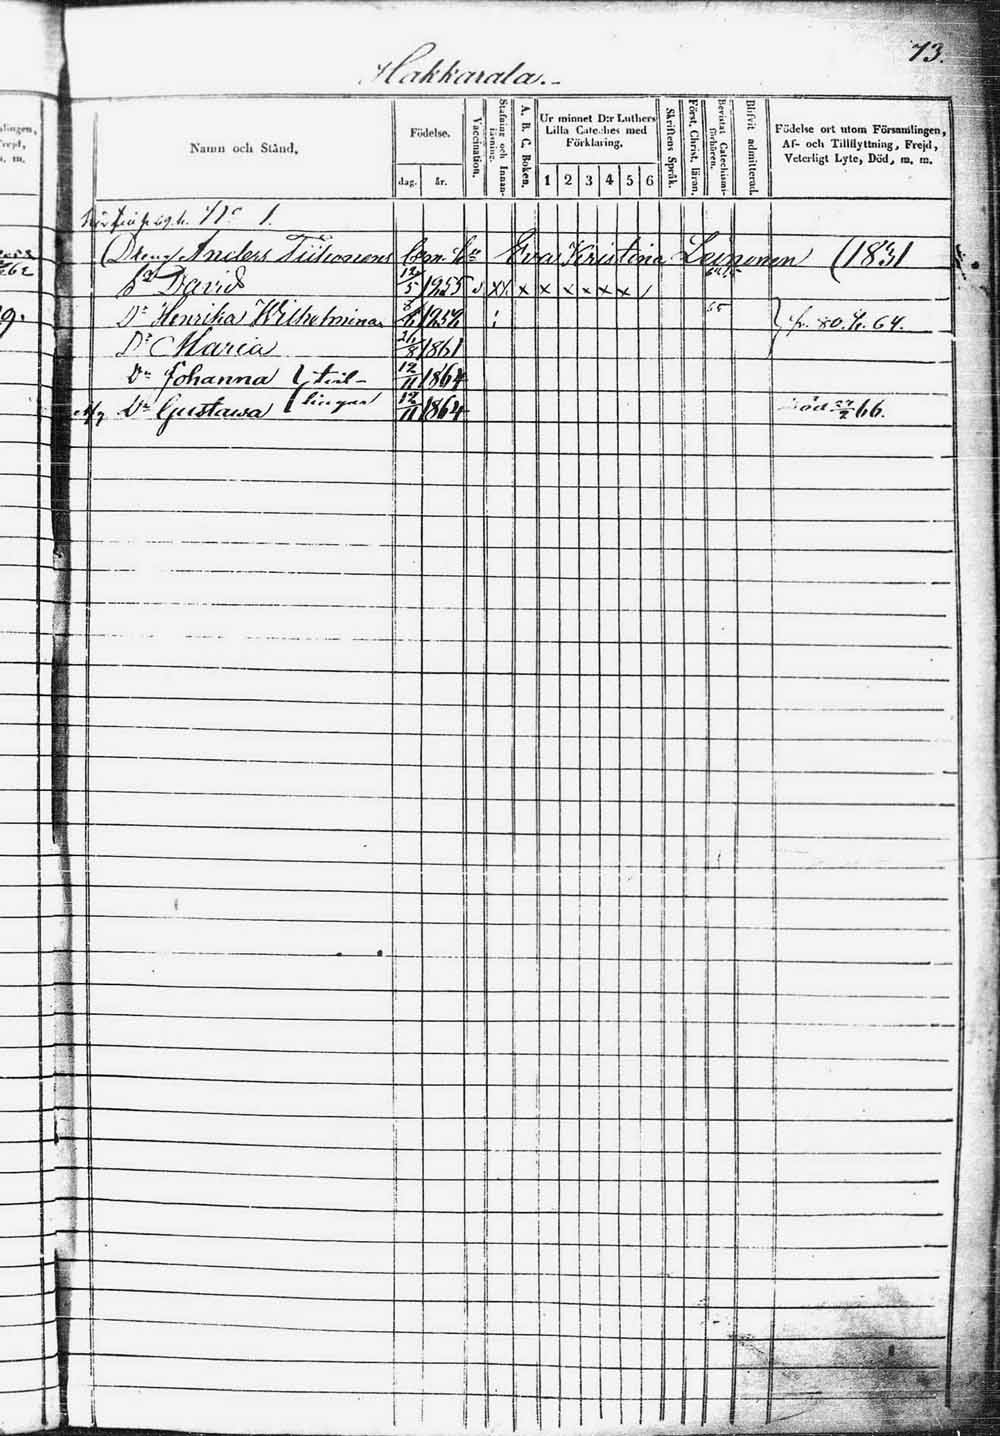 73.
Hakkarala.
Namn och Stånd,
Födelse.
dag. år.
Vaccination.
Stafning och Innanläsning.
A. B. C. Boken.
Ur minnet D:r Luthers Lilla Cateches med Förklaring.
1 2 3 4 5 6
Skriftens Språk.
Först. Christ. läran.
Bevistat Catechismiförhören.
Blifvit admitterad.
Födelse ort utom Församlingen, Af- och Tillflyttning, Frejd, Veterligt Lyte, Död, m. m.
No 1.
Dreng Anders Tiihonens Eva Kristina Leinonen (1831
David 12/5 1855 x x x x x x
Dr Henrika Wilhelmina 65 fr. 80. 64.
Dr Maria 1861
Dr Johanna 12/11 1864 tvil-
Dr Gustava 12/11 1864 lingar död 66.